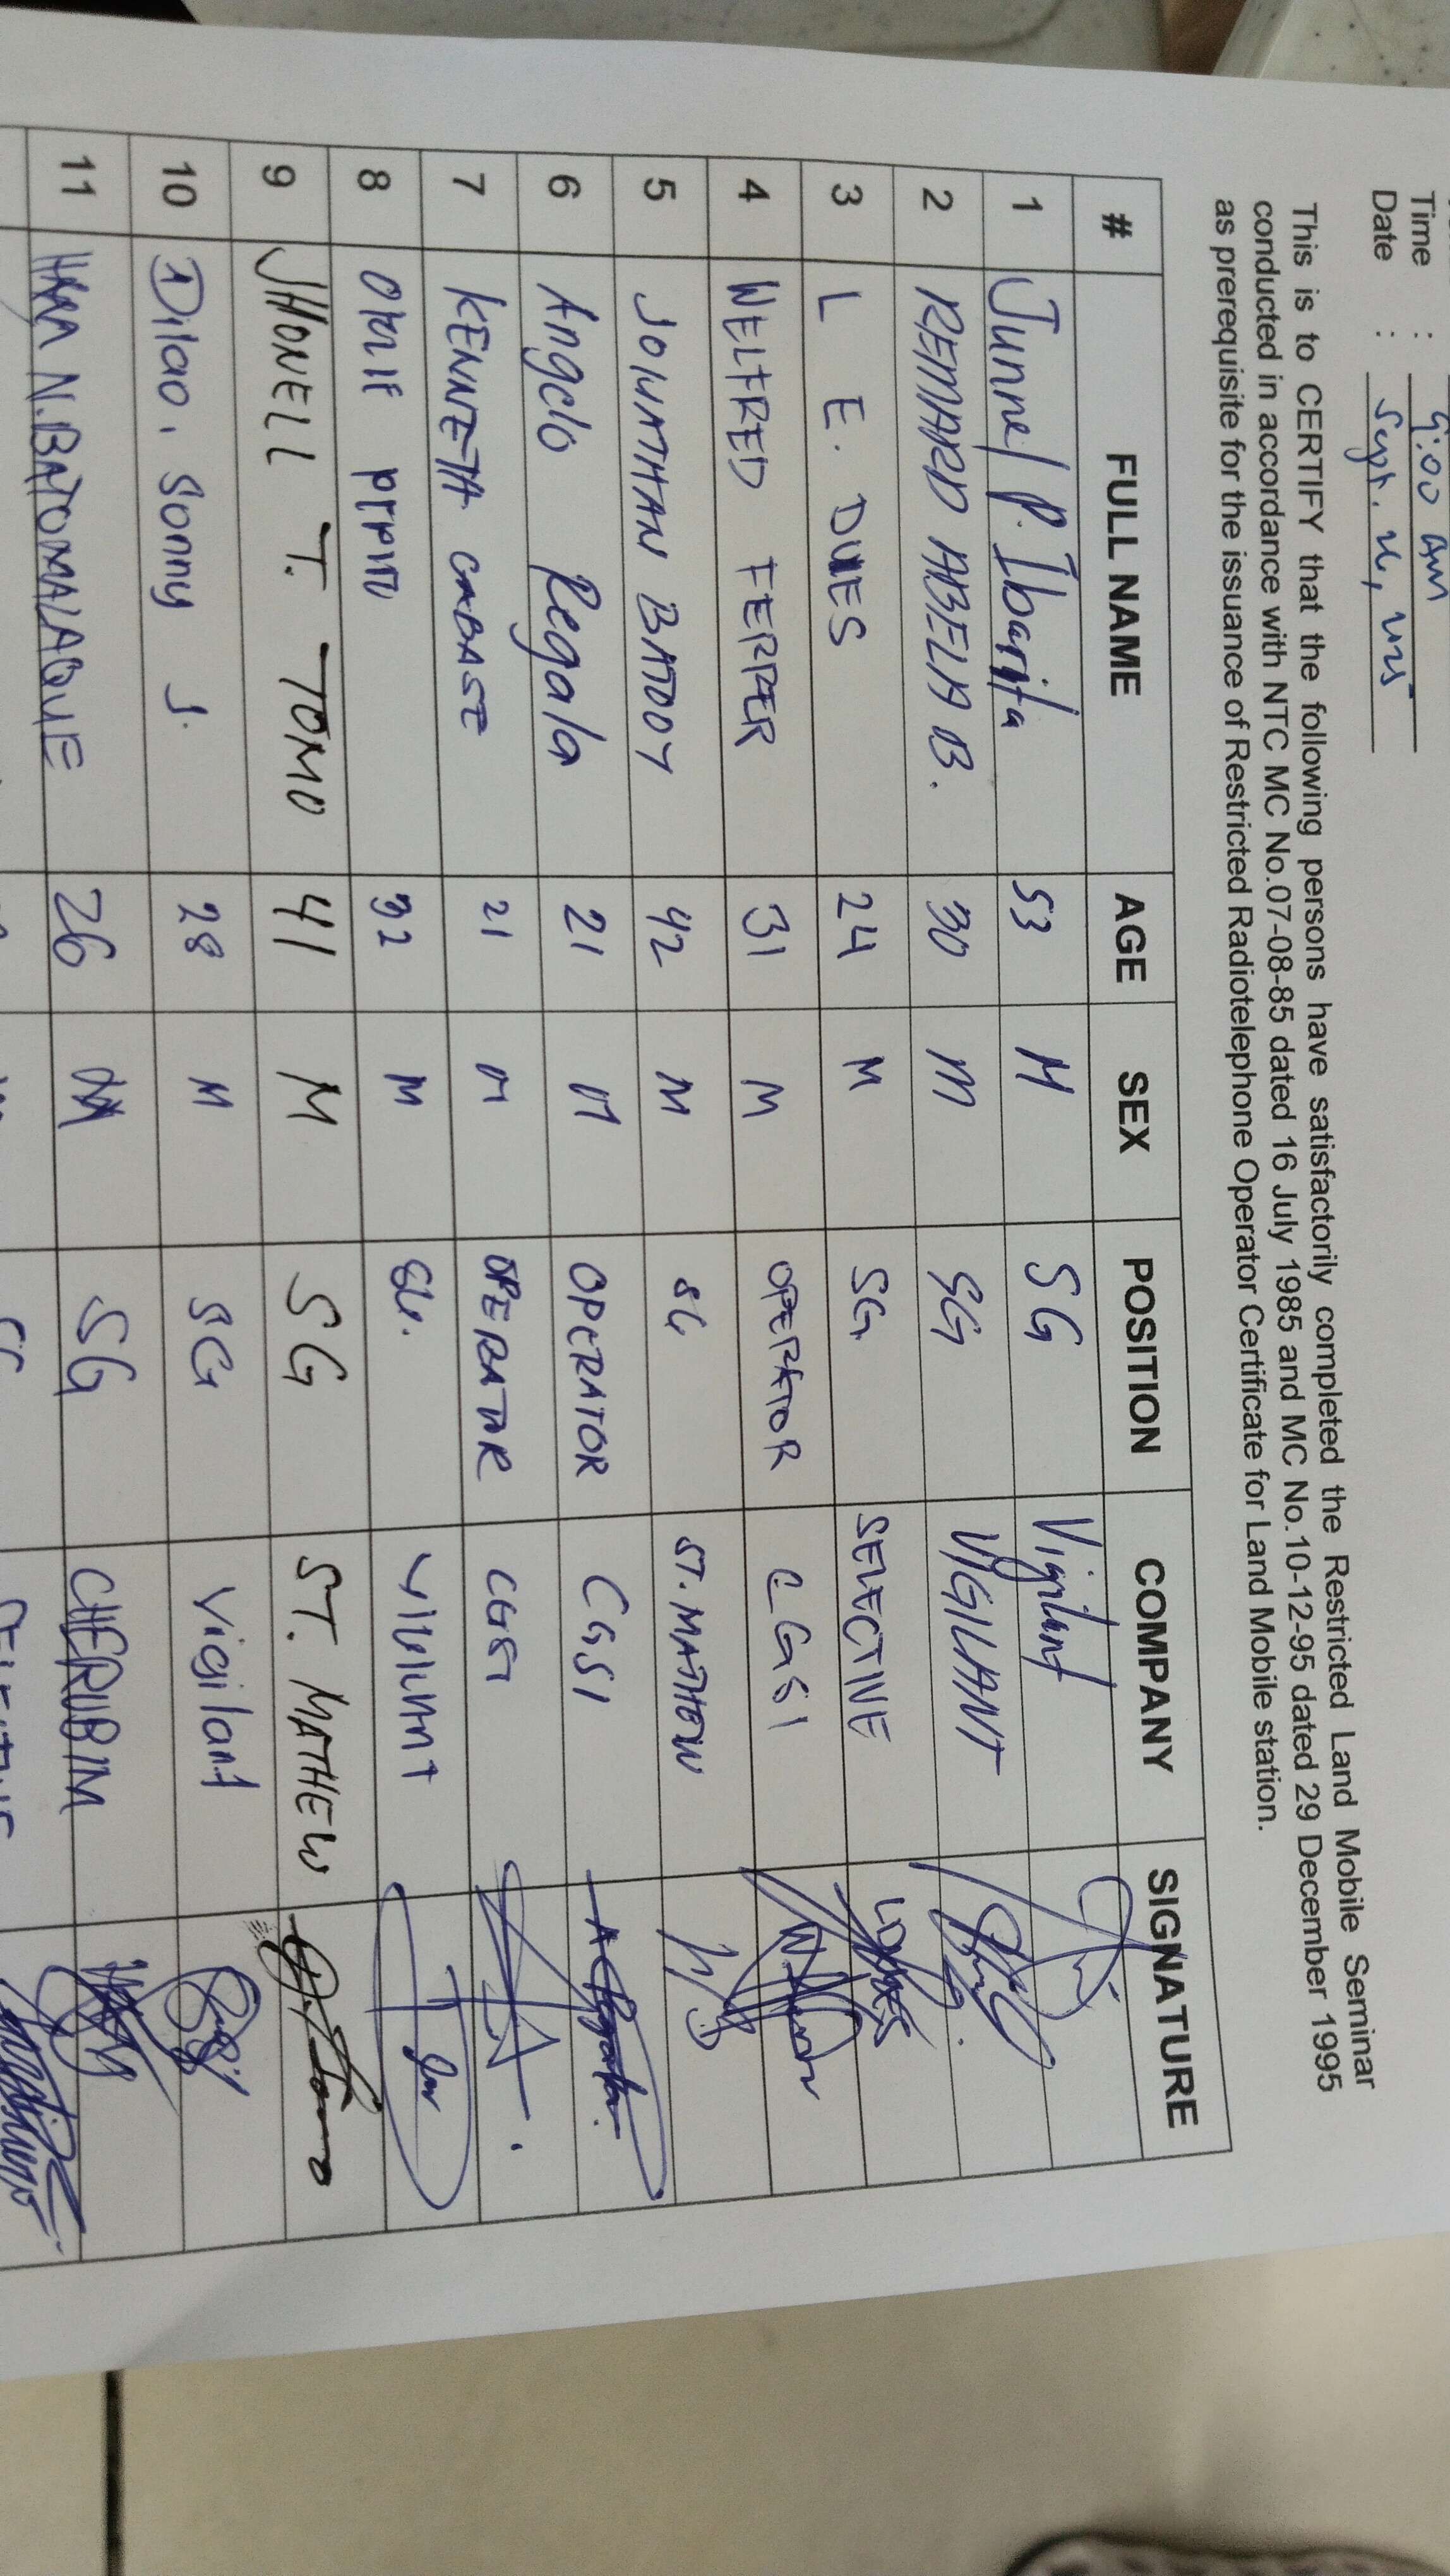 Time : 9:00 am
Date : Sept. 26, 2025
This is to CERTIFY that the following persons have satisfactorily completed the Restricted Land Mobile Seminar
conducted in accordance with NTC MC No.07-08-85 dated 16 July 1985 and MC No.10-12-95 dated 29 December 1995
as prerequisite for the issuance of Restricted Radiotelephone Operator Certificate for Land Mobile station.
# FULL NAME AGE SEX POSITION COMPANY SIGNATURE
1 Junnel P. Ibarita 53 M SG Vigilant
2 REMARD ABELIA B. 30 M SG VIGILANT
3 L E. 24 M SG SELECTIVE
4 WELFRED FERRER 31 M OPERATOR CGSI
5 JONATHAN BATOOY 42 M SG ST. MATHEW
6 Angelo Regala 21 M OPERATOR CGSI
7 KENNETH CABASE 21 M OPERATOR CGSI
8 32 M SG. VIGILANT
9 JHONELL T. TOMO 41 M SG ST. MATHEW
10 Dilao, Sonny J. 28 M SG Vigilant
11 N. BATOMALAQUE 26 M SG CHERUBIM